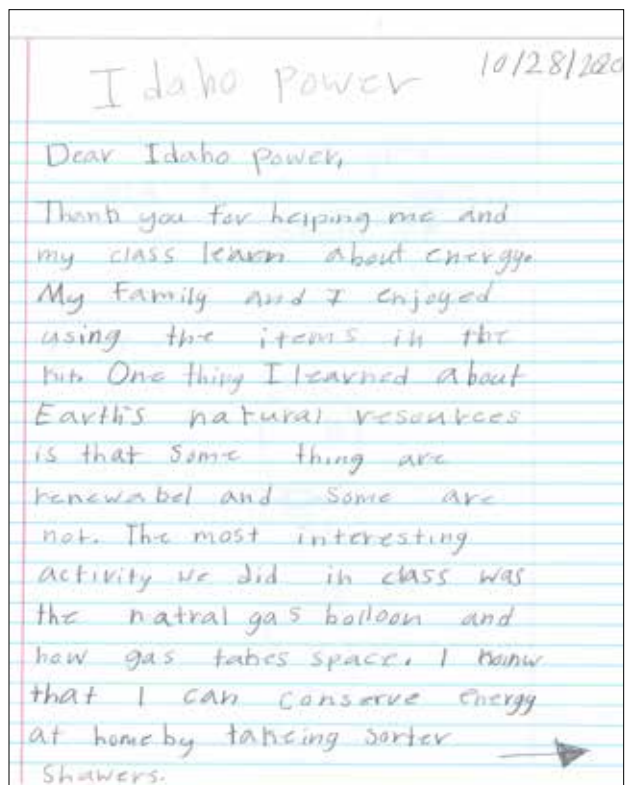 Idaho Power
10/28/202
Dear Idaho Power,
Thank you for helping me and
my class learn about energy.
My Family and I enjoyed
using the items in the
kit. One thing I learned about
Earth's natural resources
is that some thing are
renewabel and some are
not. The most interesting
activity we did in class was
the natral gas bolloon and
how gas takes space. I
that I can conserve energy
at home by takeing sorter
shawers.